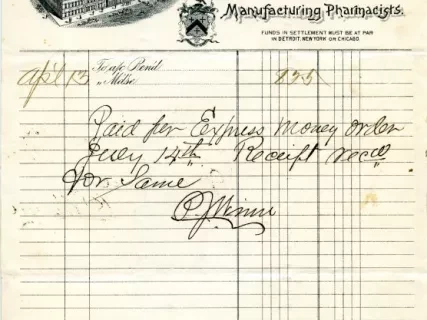 Manufacturing Pharmacists.
FUNDS IN SETTLEMENT MUST BE AT PAR
IN DETROIT, NEW YORK OR CHICAGO
Apl 13 To a/c Rend. 835
" Mdse
Paid per Express Money order
July 14th Receipt rec
for Same